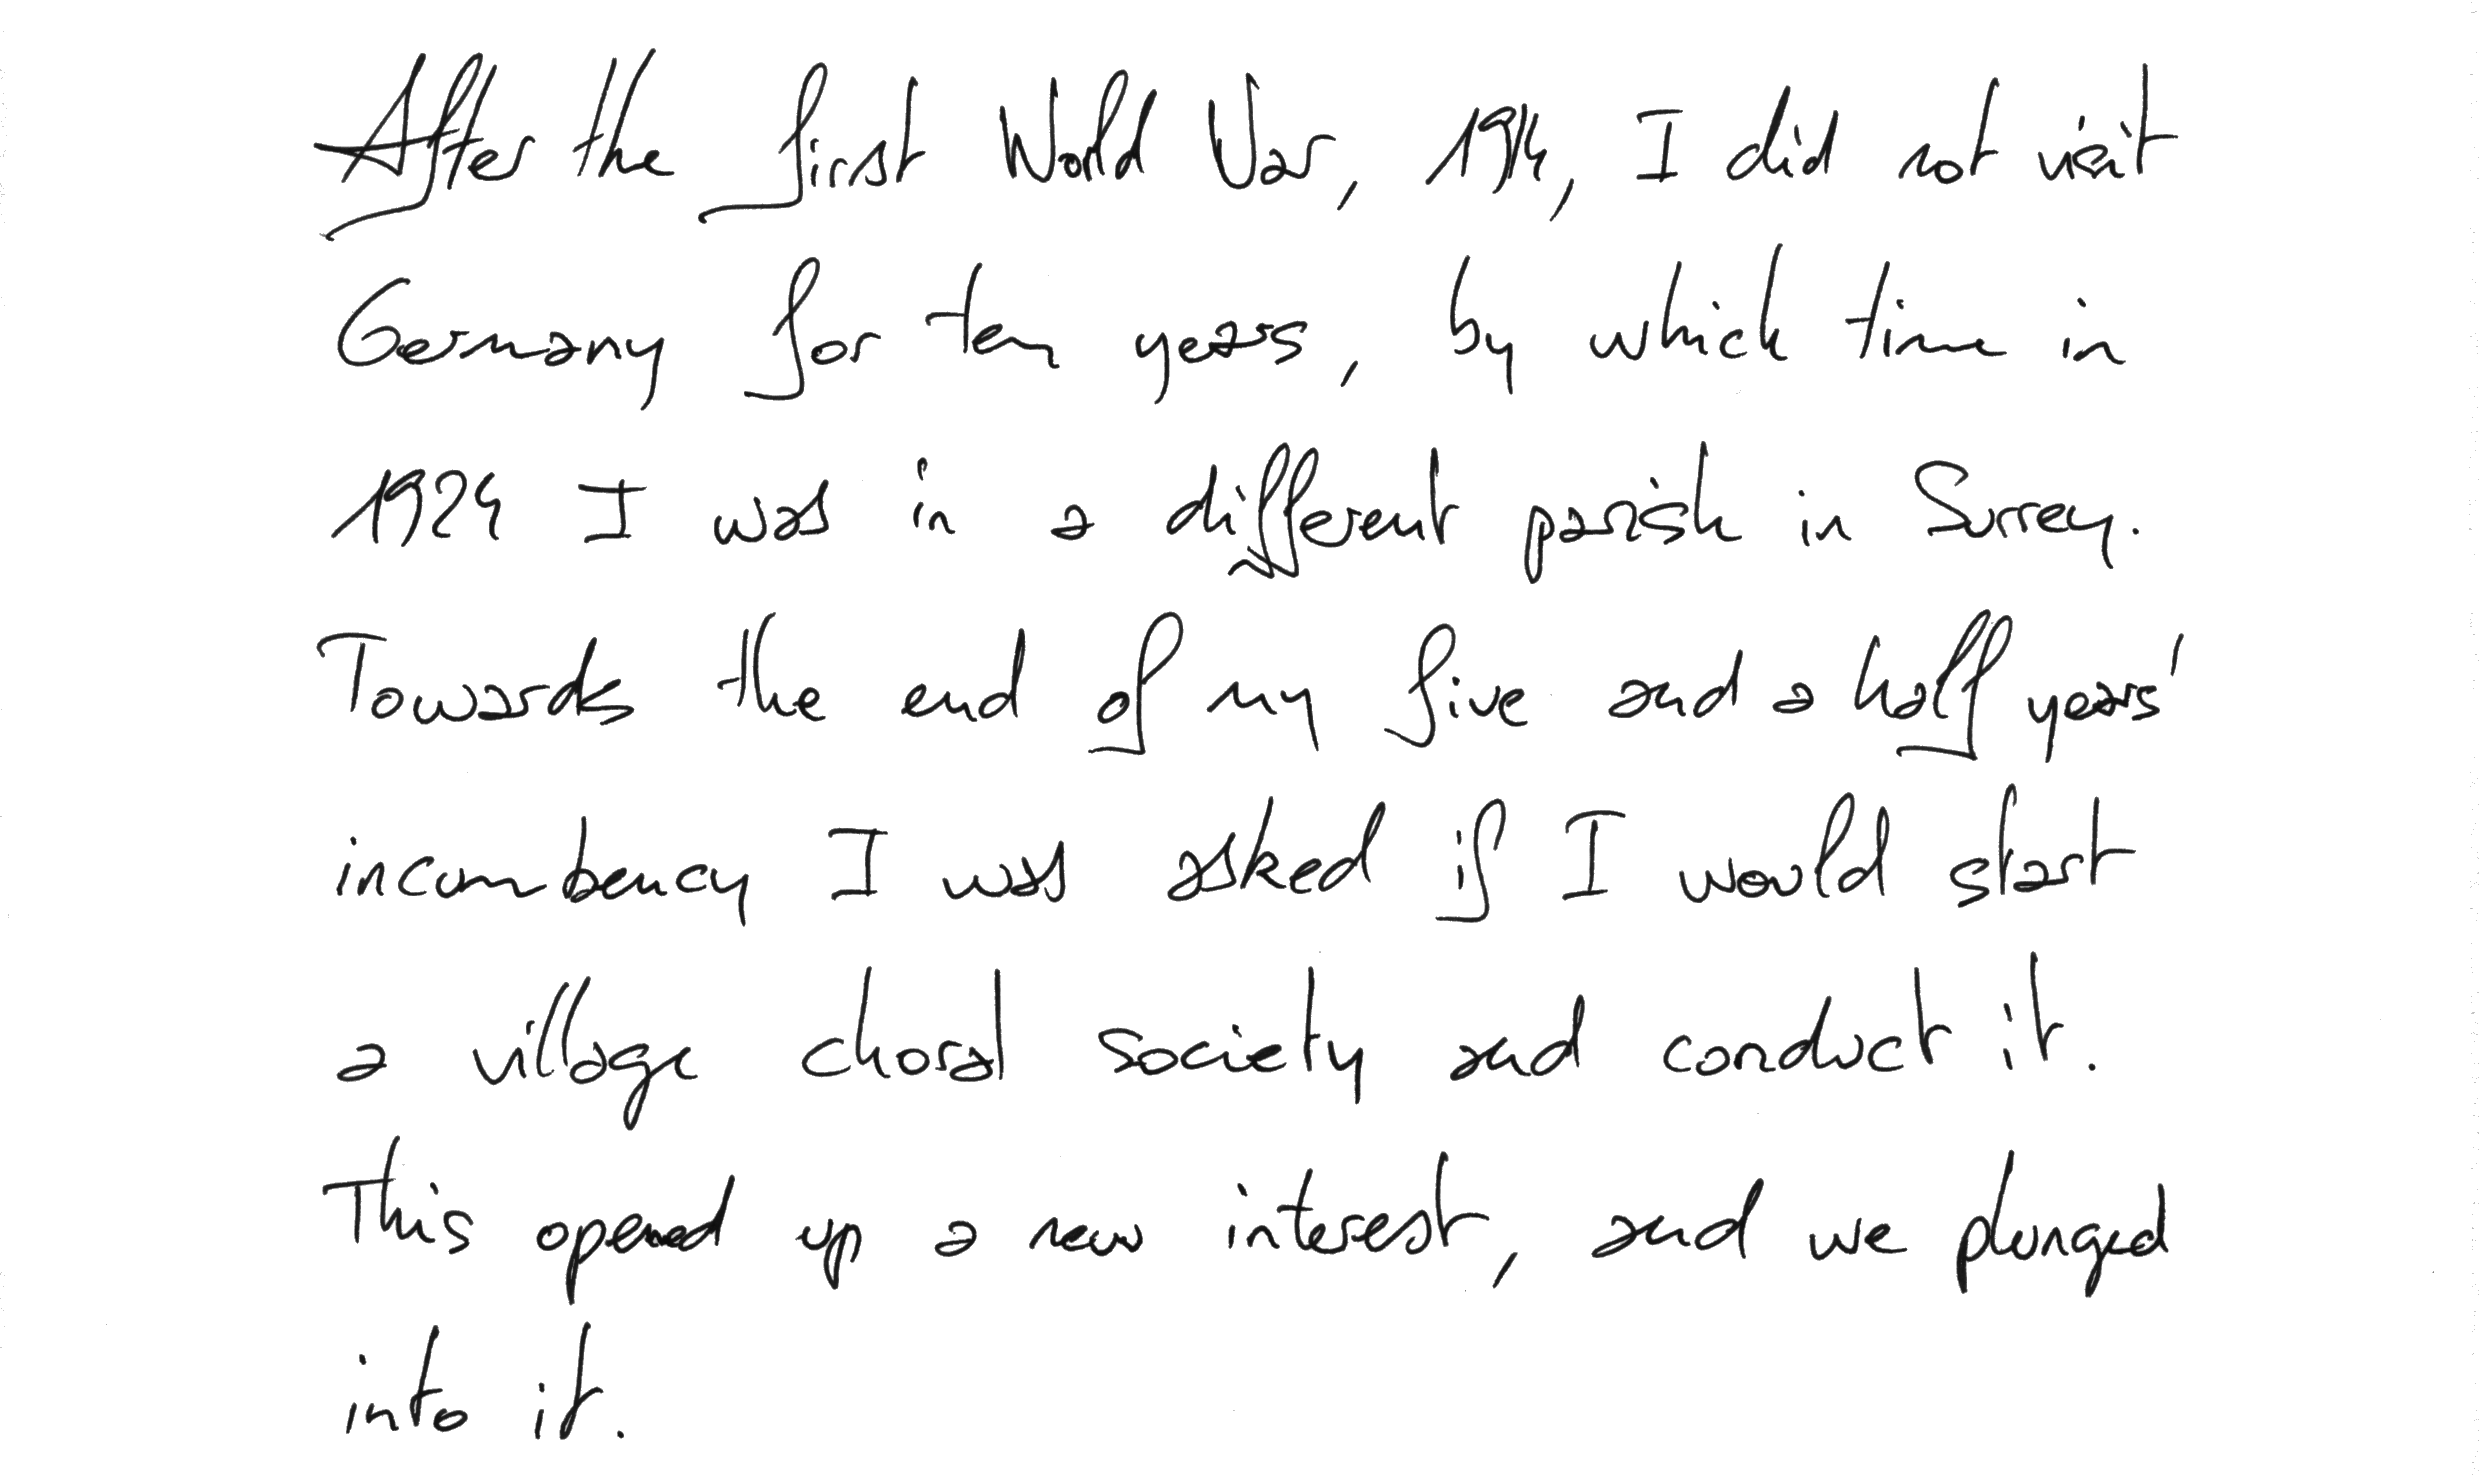 After the first World War, 1914, I did not visit
Germany for ten years, by which time in
1924 I was in a different parish in Surrey.
Towards the end of my five and a half years'
incumbency I was asked if I would start
a village choral society and conduct it.
This opened up a new interest, and we plunged
into it.